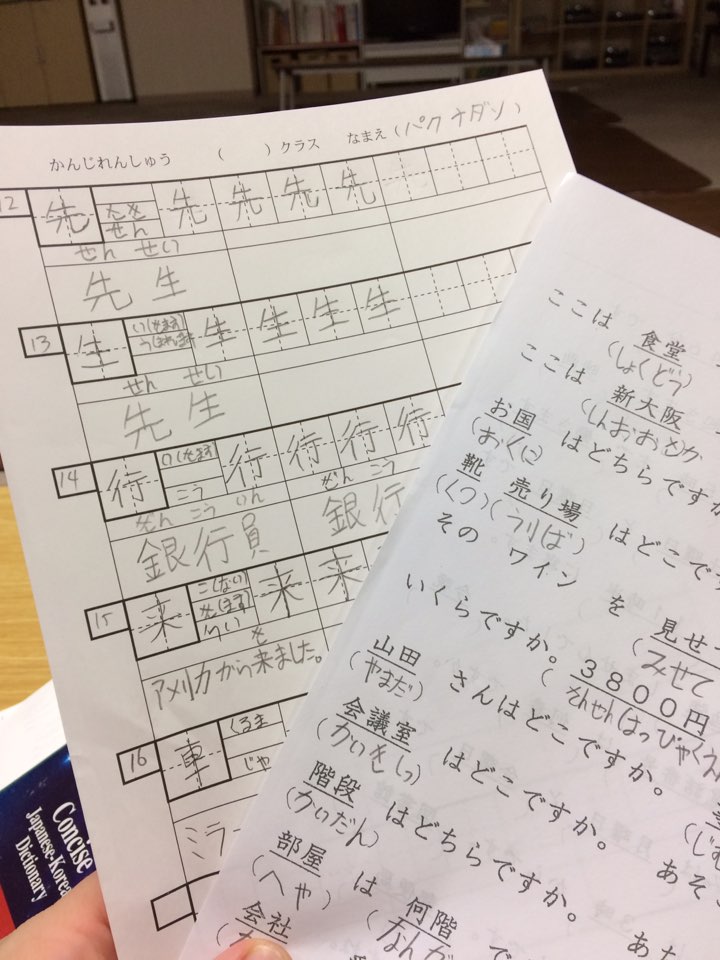 かんじれんしゅう （　　）クラス なまえ（パク ナダン）
12 先 さき せん 先 先 先 先
せん せい
先生
13 生 生 生 生 生
せん せい
先生
14 行 い(きます) こう 行 行 行 行
ぎん こう いん ぎん こう
銀行員 銀行
15 来 こ(ない) き(ます) らい 来 来
き
アメリカから来ました。
16 車 くるま しゃ
ミラー
ここは 食堂
(しょくどう)
ここは 新大阪
(しんおおさか
お国 はどちらですか
(おくに)
靴 売り場 はどこで
(くつ)(うりば)
その ワイン を 見せ
(みせて
いくらですか。 3800円
(さんせんはっぴゃくえ
山田 さんはどこですか。
(やまだ)
会議室 はどこですか。 あそ
(かいきしつ)
階段 はどちらですか。
(かいだん)
部屋 は 何階 で
(へや) (なんが
会社
Concise
Japanese-Korea
Dictionary